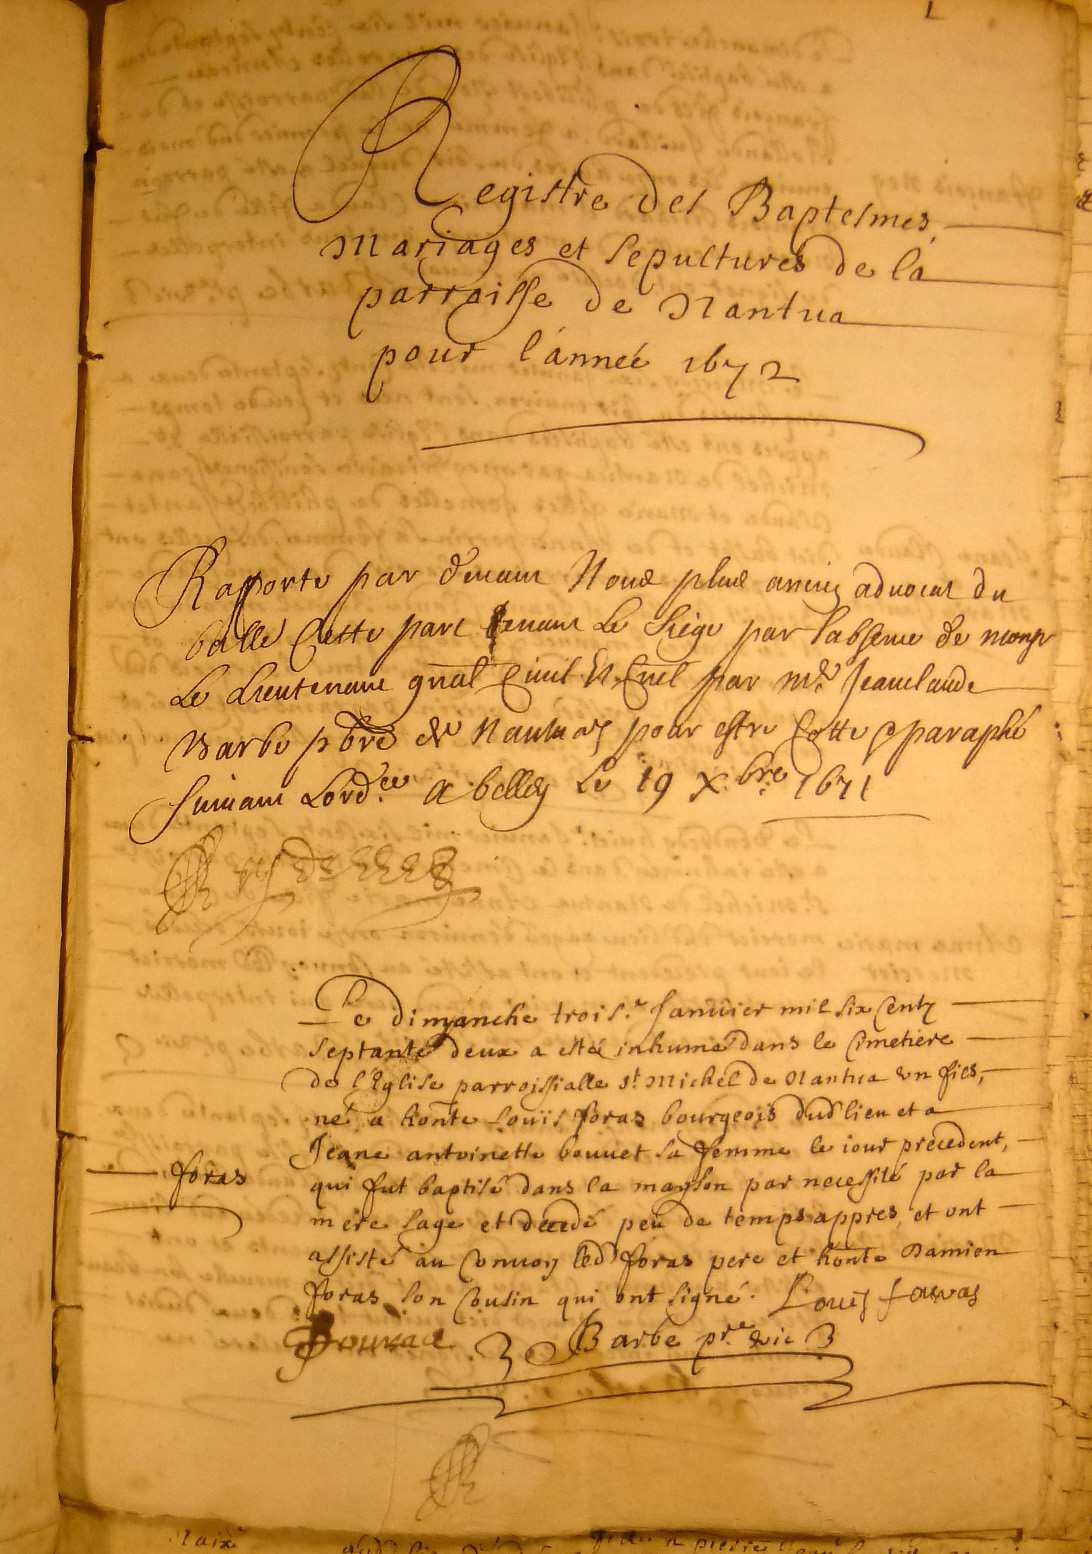 1
Registre des Baptesmes,
Mariages et sepultures de la
parroisse de Nantua
pour l'année 1672
Rapporté par devant Nous plus ancien advocat du
balle cette part tenant Le siege par l'absence de monsr
Le Lieutenant gnal Civil Et Crel par mre Jeanclaude
Barbe pbre de Nantua pour estre Cotte & paraphé
suivant Lordce A belley Le 19 Xbre 1671
Le dimanche trois.e Janvier mil six centz
septante deux a esté inhumé dans le Cimetiere
de l'Eglise parroissialle st Michel de Nantua un fils,
né a honte Louis foras bourgeois dud lieu et a
Jeane antoinette bouvet sa femme le iour precedent,
foras
qui fut baptisé dans la mayson par necessité par la
mere sage et decedé peu de temps appres, et ont
assisté au Convoy led foras pere et honte Damien
foras son Cousin qui ont signé. Louis favras
Barbe pre vic